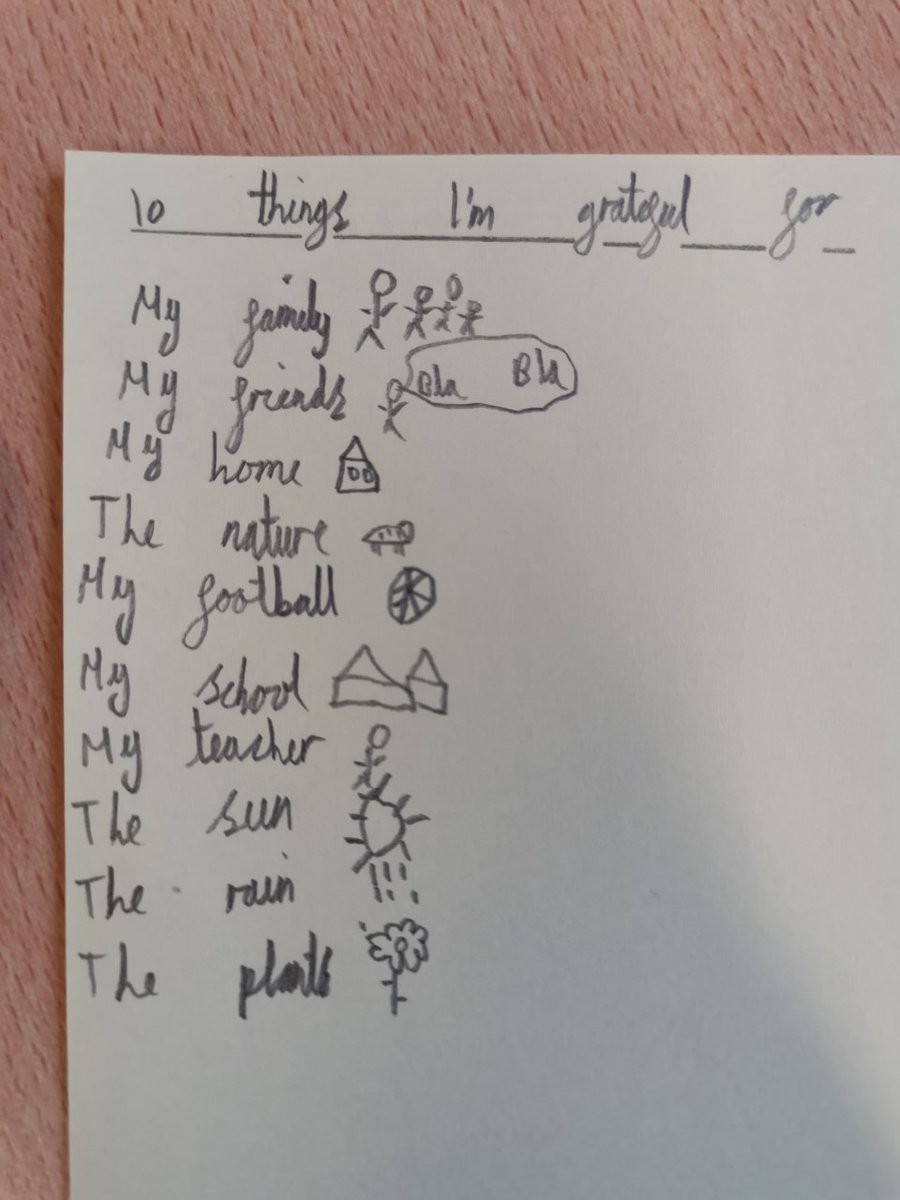 10 things I'm grateful for
My family
My friends Bla Bla
My home
The nature
My football
My school
My teacher
The sun
The rain
The plants